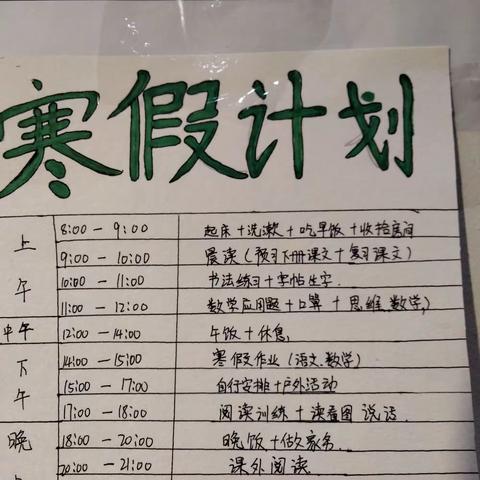 寒假计划
上午
8:00 — 9:00 起床+洗漱+吃早饭+收拾房间
9:00 — 10:00 晨读(预习下册课文+复习课文)
10:00 — 11:00 书法练习+字帖生字.
11:00 — 12:00 数学应用题+口算+思维数学)
中午
12:00 — 14:00 午饭+休息,
下午
14:00 — 15:00 寒假作业(语文.数学)
15:00 — 17:00 自行安排+户外活动
17:00 — 18:00 阅读训练+读看图说话.
晚
18:00 — 20:00 晚饭+做家务.
20:00 — 21:00 课外阅读